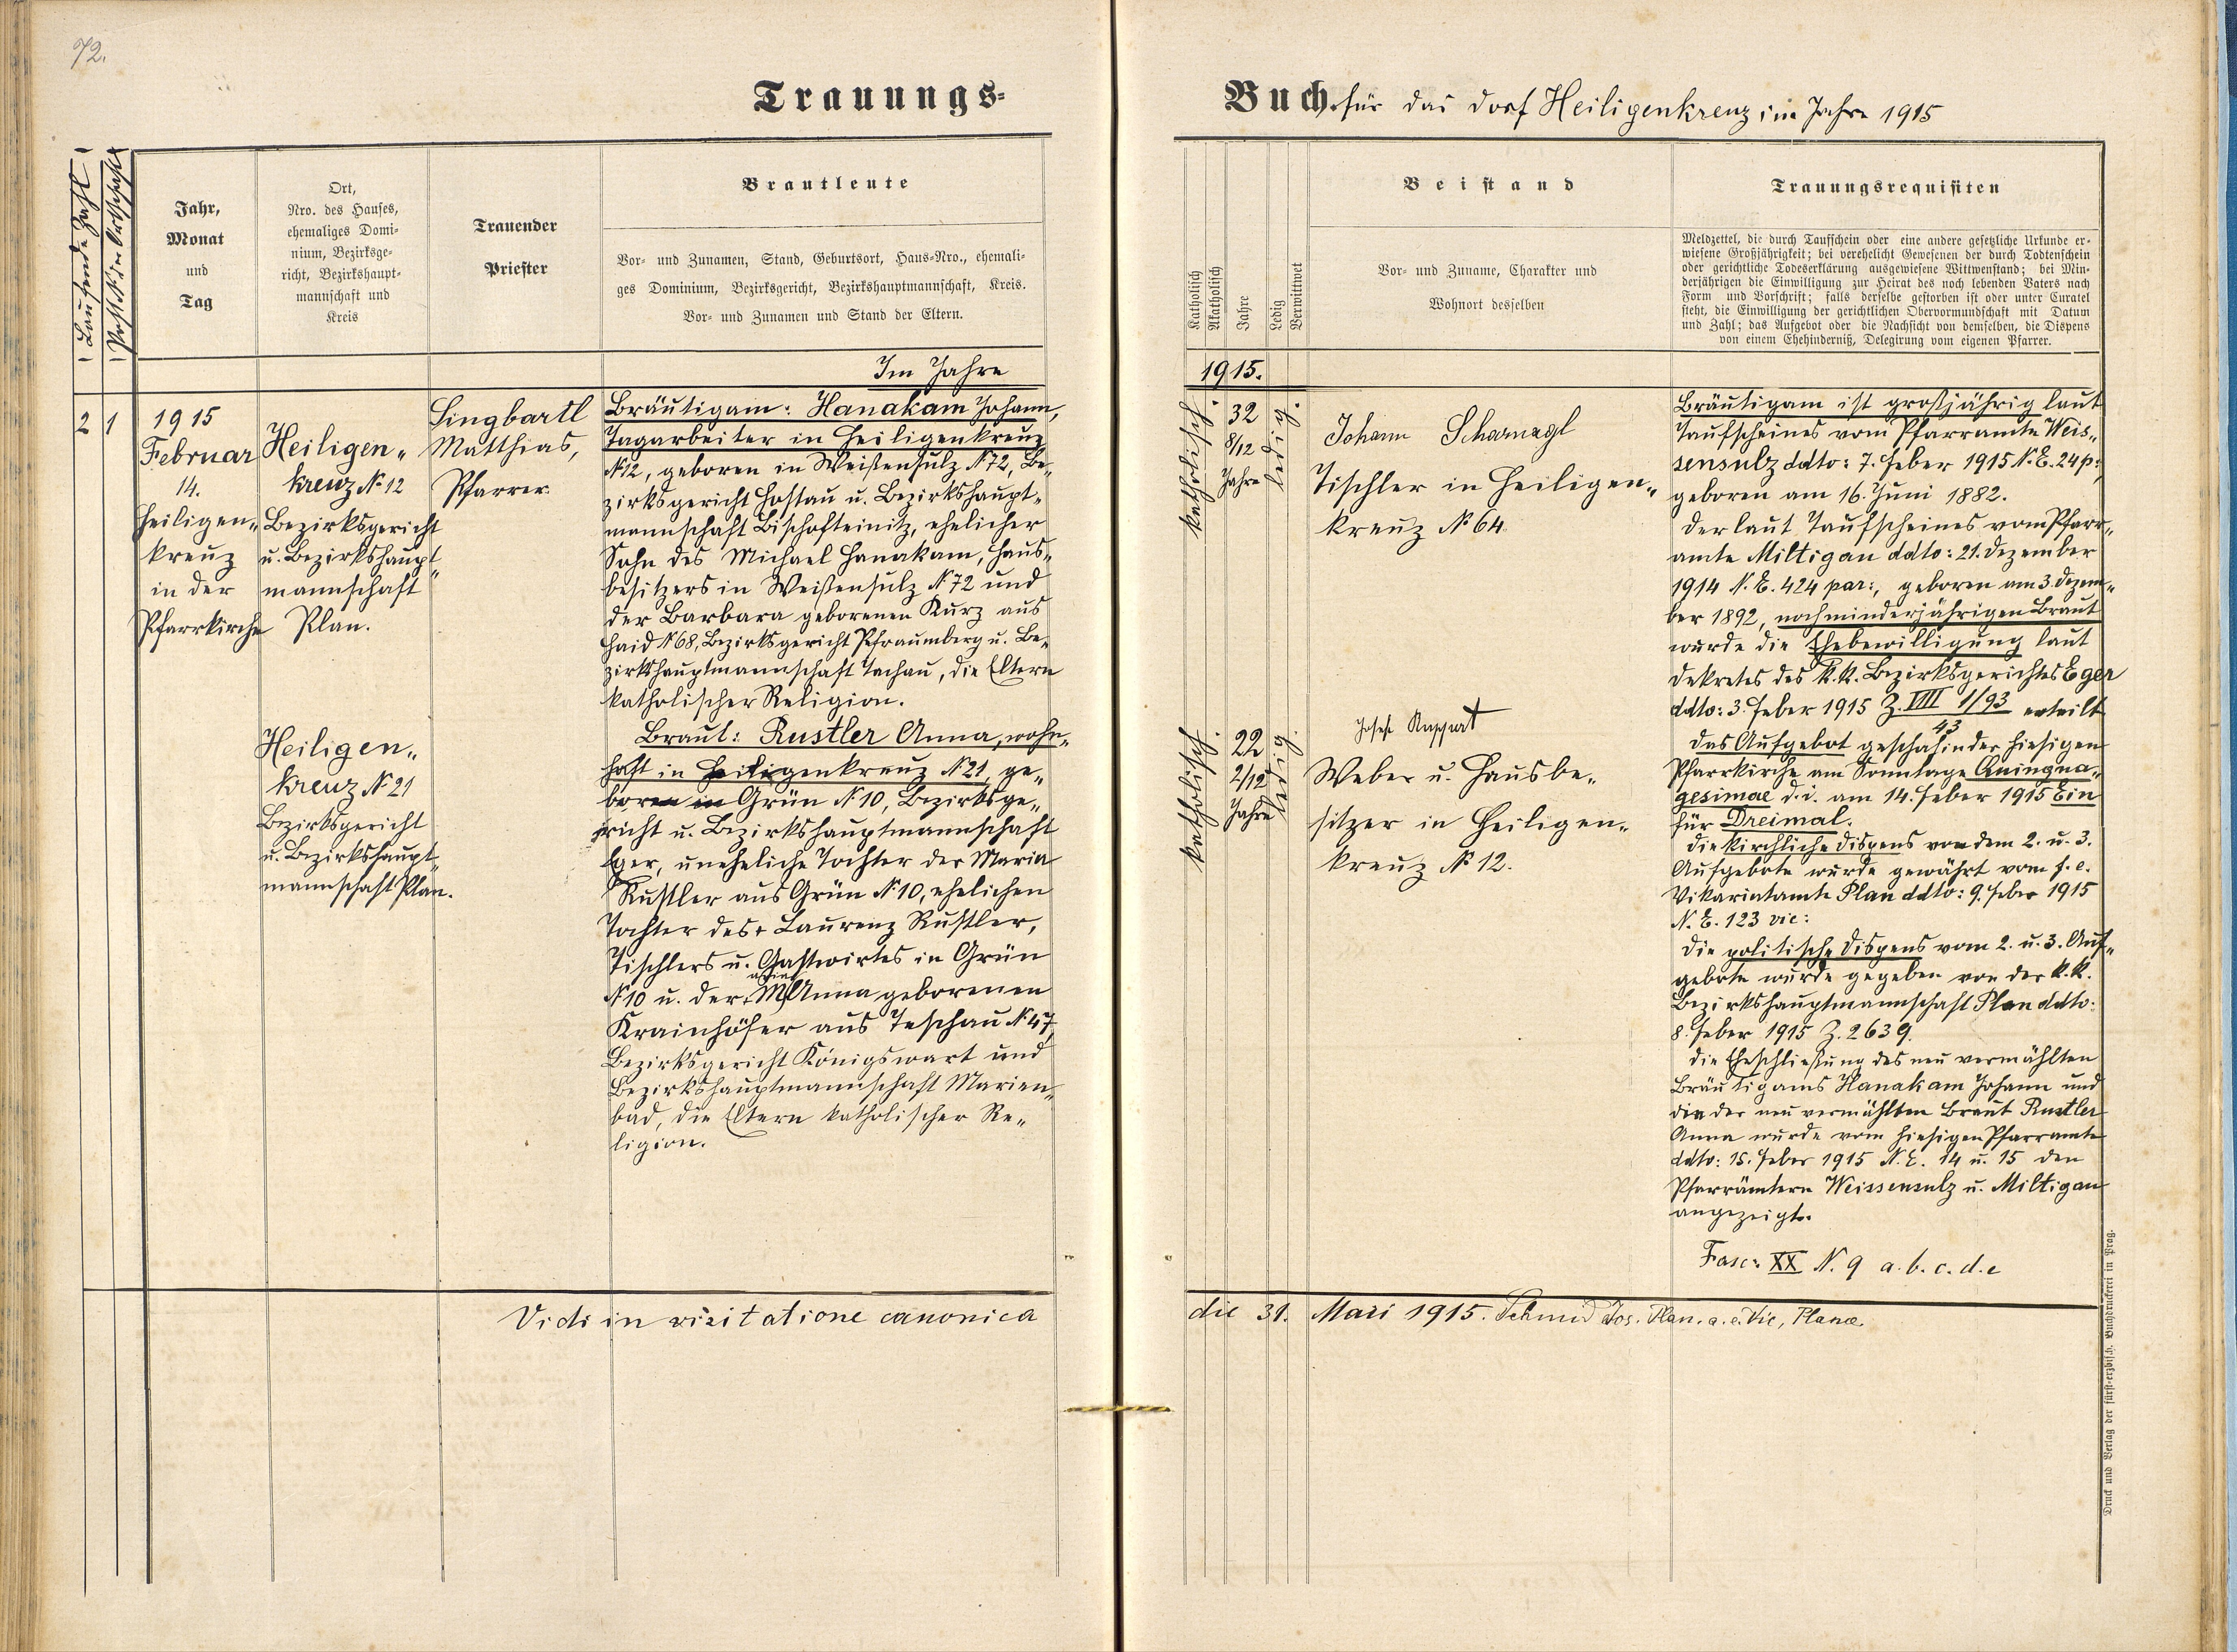 72.
Trauungs-
Laufende Zahl
Jahr,
Monat
und
Tag
Ort,
Nro. des Hauses,
ehemaliges Domi-
nium, Bezirksge-
richt, Bezirkshaupt-
mannschaft und
Kreis
Trauender
Priester
Brautleute
Vor- und Zunamen, Stand, Geburtsort, Haus-Nro., ehemali-
ges Dominium, Bezirksgericht, Bezirkshauptmannschaft, Kreis.
Vor- und Zunamen und Stand der Eltern.
Im Jahre
2 1
1915
Februar
14.
Heiligen„
kreuz
in der
Pfarrkirche
Heiligen„
kreuz № 12
Bezirksgericht
u. Bezirkshaupt„
mannschaft
Plan.
Heiligen„
kreuz № 21
Bezirksgericht
u. Bezirkshaupt„
mannschaft Plan.
Singbartl
Matthias,
Pfarrer
Bräutigam: Hanakam Johann,
Tagarbeiter in Heiligenkreuz
№ 12, geboren in Weißensulz № 72, Be„
zirksgericht Hostau u. Bezirkshaupt„
mannschaft Bischofteinitz, ehelicher
Sohn des Michael Hanakam, Haus„
besitzers in Weißensulz № 72 und
der Barbara geborenen Kurz aus
Haid № 68, Bezirksgericht Pfraumberg u. Be„
zirkshauptmannschaft Tachau, die Eltern
katholischer Religion.
Braut: Rustler Anna, wohn„
haft in Heiligenkreuz № 21, ge„
boren in Grün № 10, Bezirksge„
richt u. Bezirkshauptmannschaft
Eger, uneheliche Tochter der Maria
Rustler aus Grün № 10, ehelichen
Tochter des + Laurenz Rustler,
Tischlers u. Gastwirtes in Grün
№ 10 u. der + M. Anna geborenen
Krainhöfer aus Teschau № 47,
Bezirksgericht Königswart und
Bezirkshauptmannschaft Marien„
bad, die Eltern katholischer Re„
ligion.
Vidi in visitatione canonica
Buch für das Dorf Heiligenkreuz im Jahre 1915
Katholisch
Akatholisch
Jahre
Ledig
Verwittwet
Beistand
Vor- und Zuname, Charakter und
Wohnort desselben
Trauungsrequisiten
Meldzettel, die durch Taufschein oder eine andere gesetzliche Urkunde er-
wiesene Großjährigkeit; bei verehelicht Gewesenen der durch Todtenschein
oder gerichtliche Todeserklärung ausgewiesene Wittwenstand; bei Min-
derjährigen die Einwilligung zur Heirat des noch lebenden Vaters nach
Form und Vorschrift; falls derselbe gestorben ist oder unter Curatel
steht, die Einwilligung der gerichtlichen Obervormundschaft mit Datum
und Zahl; das Aufgebot oder die Nachsicht von demselben, die Dispens
von einem Ehehinderniß, Delegirung vom eigenen Pfarrer.
1915.
katholisch.
32
8/12
Jahre
ledig.
Johann Scharnagl
Tischler in Heiligen„
kreuz № 64.
katholisch.
22
2/12
Jahre
ledig.
Josef Rappert
Weber u. Hausbe„
sitzer in Heiligen„
kreuz № 12.
Bräutigam ist großjährig laut
Taufscheines vom Pfarramte Weis„
sensulz ddto: 7. Feber 1915 N. E. 24 p:,
geboren am 16. Juni 1882.
Der laut Taufscheines vom Pfarr„
amte Miltigau ddto: 21. Dezember
1914 N. E. 424 par:, geboren am 3. Dezem„
ber 1892, noch minderjährigen Braut
wurde die Ehebewilligung laut
Dekretes des k. k. Bezirksgerichtes Eger
ddto: 3. Feber 1915 Z. VIII 1/93 erteilt
43
Das Aufgebot geschah in der hiesigen
Pfarrkirche am Sonntage Quinqua„
gesimae d. i. am 14. Feber 1915 Ein
für Dreimal.
Die kirchliche Dispens von dem 2. u. 3.
Aufgebote wurde gewährt vom f. e.
Vikariatamte Plan ddto: 9. Feber 1915
N. E. 123 vic:
Die politische Dispens vom 2. u. 3. Auf„
gebote wurde gegeben von der k. k.
Bezirkshauptmannschaft Plan ddto:
8. Feber 1915 Z. 2639.
Die Eheschließung des neu vermählten
Bräutigams Hanakam Johann und
die der neu vermählten Braut Rustler
Anna wurde vom hiesigen Pfarramte
ddto: 15. Feber 1915 N. E. 14 u. 15 den
Pfarrämtern Weissensulz u. Miltigau
angezeigt.
Fasc: XX N. 9 a. b. c. d. e
die 31. Maii 1915. Schmid Jos. Plan. a. e. Vic, Planae
Druck und Verlag der fürst-erzbisch. Buchdruckerei in Prag.